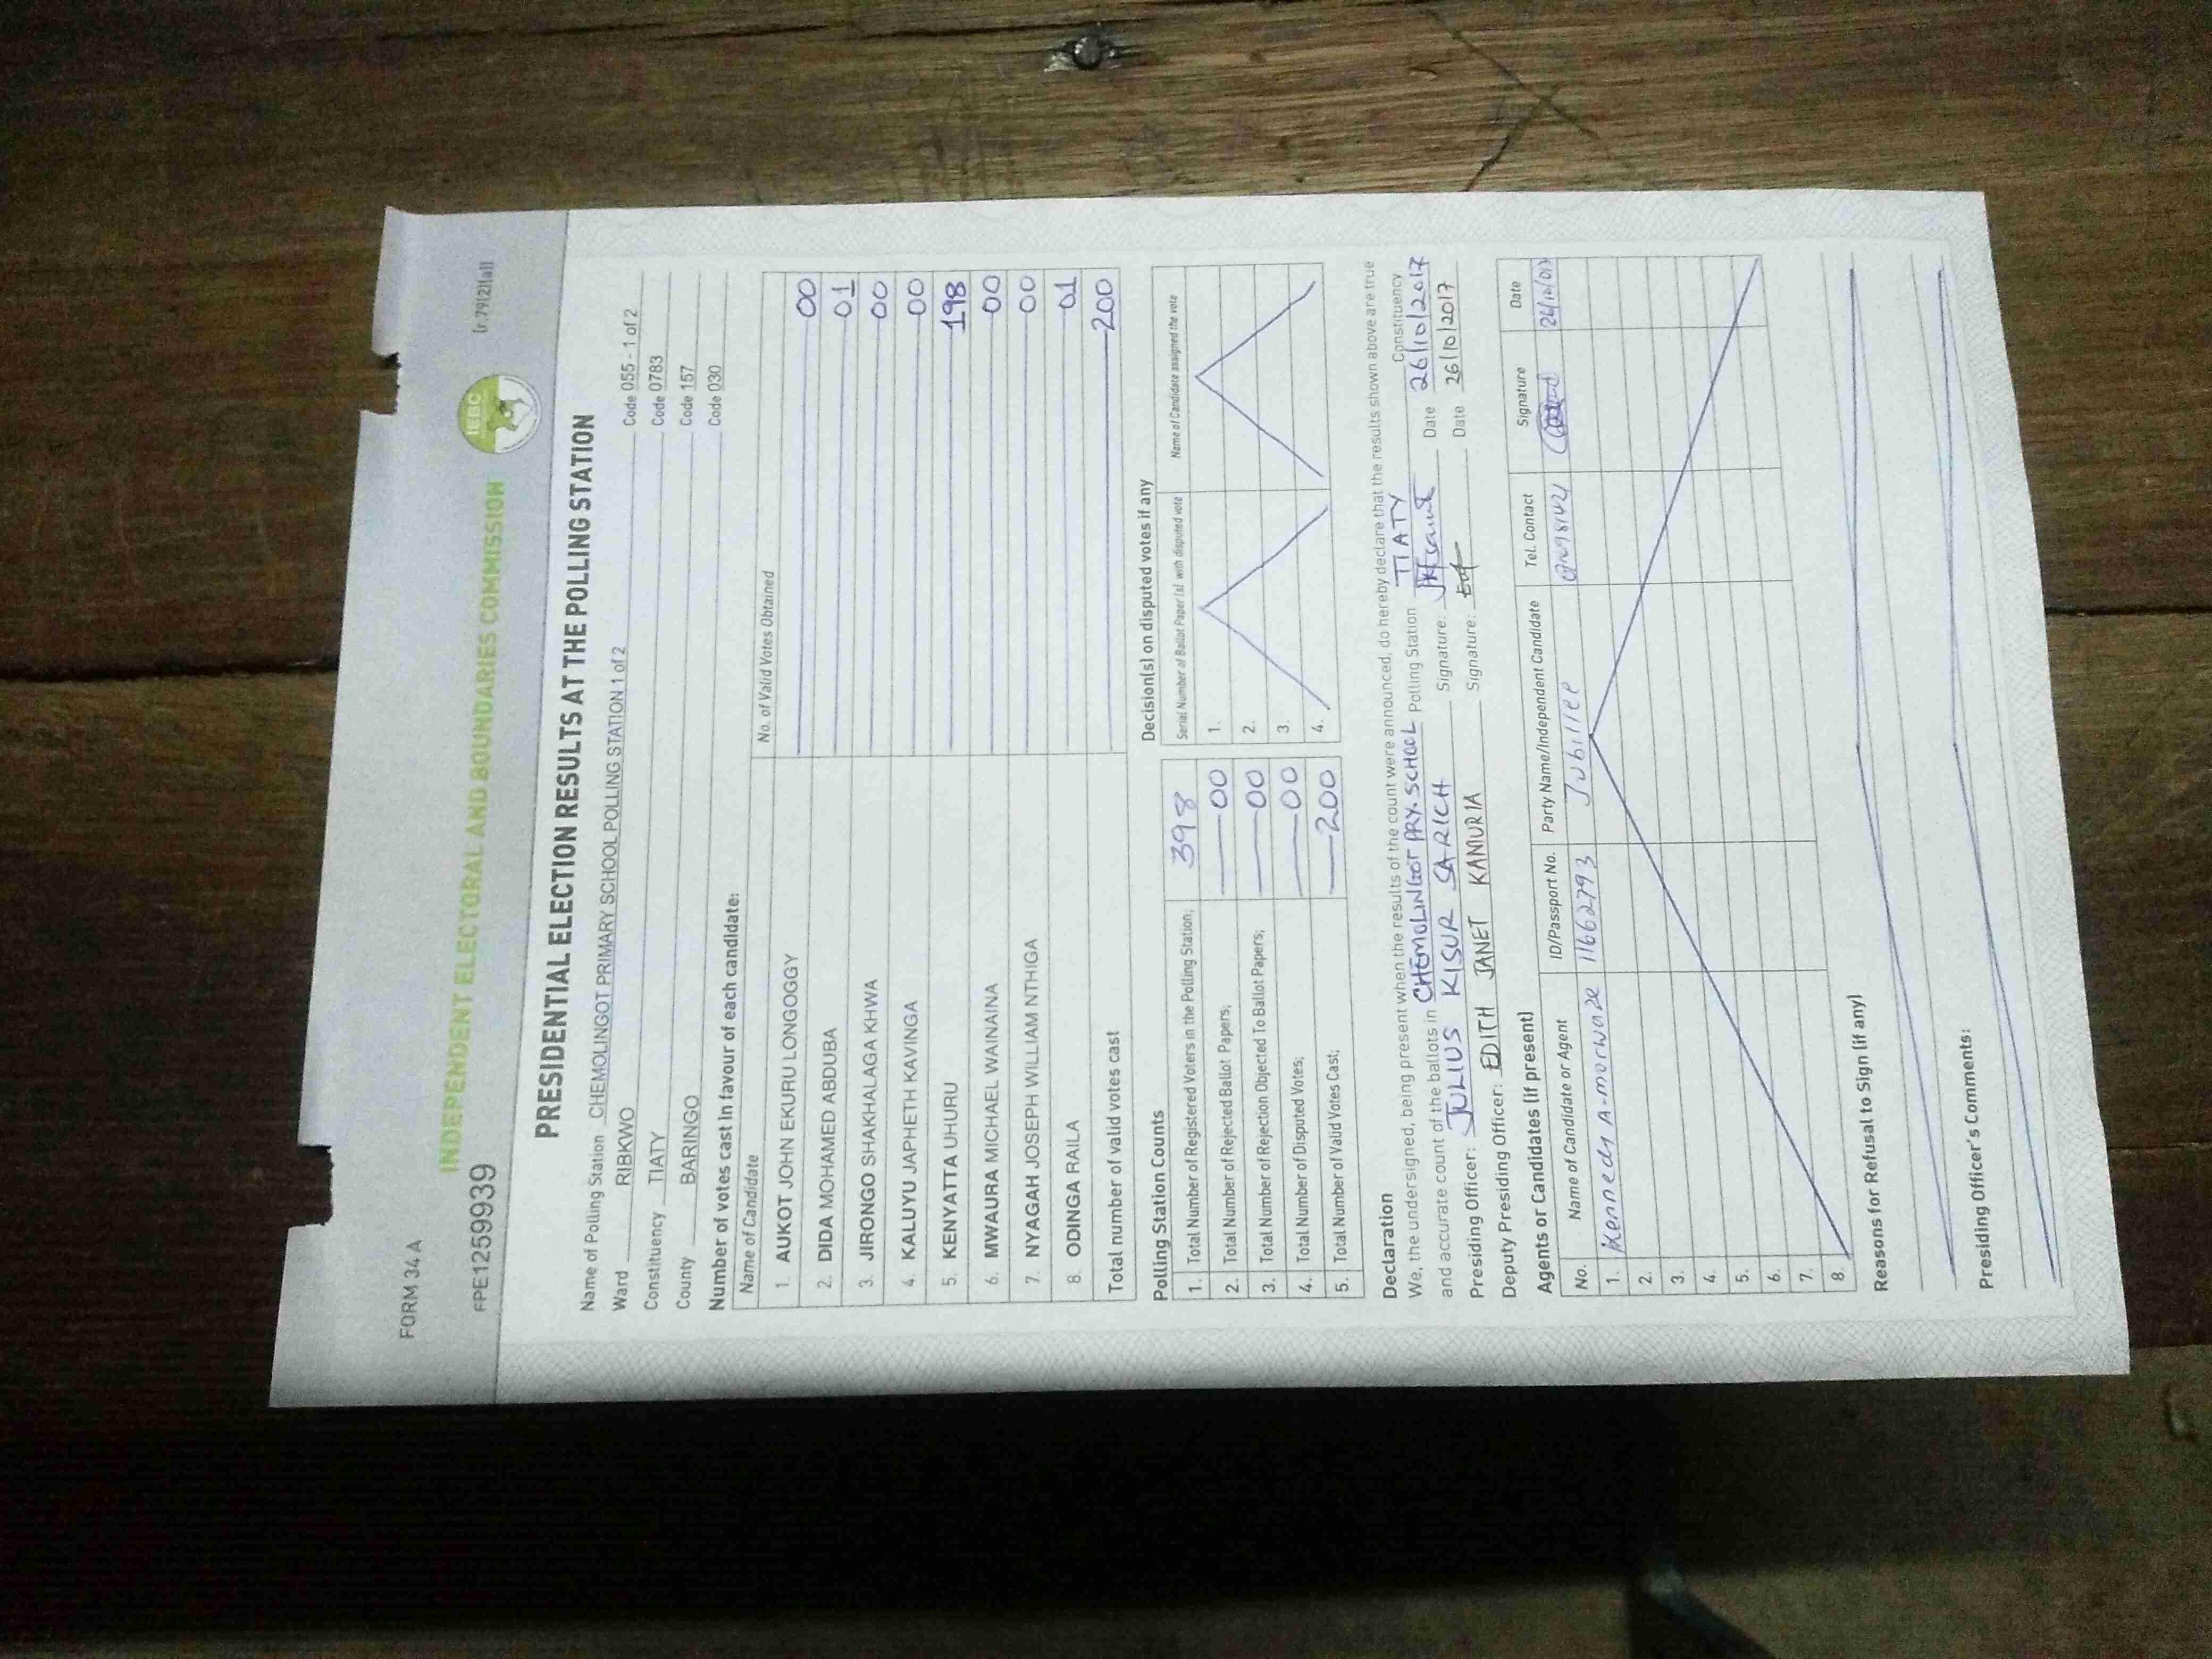 FORM 34 A
INDEPENDENT ELECTORAL AND BOUNDARIES COMMISSION
IEBC
(r.79(2)(a))
FPE1259939
PRESIDENTIAL ELECTION RESULTS AT THE POLLING STATION
Name of Polling Station CHEMOLINGOT PRIMARY SCHOOL POLLING STATION 1 of 2 Code 055 - 1 of 2
Ward RIBKWO Code 0783
Constituency TIATY Code 157
County BARINGO Code 030
Number of votes cast in favour of each candidate:
Name of Candidate No. of Valid Votes Obtained
1. AUKOT JOHN EKURU LONGOGGY 00
2. DIDA MOHAMED ABDUBA 01
3. JIRONGO SHAKHALAGA KHWA 00
4. KALUYU JAPHETH KAVINGA 00
5. KENYATTA UHURU 198
6. MWAURA MICHAEL WAINAINA 00
7. NYAGAH JOSEPH WILLIAM NTHIGA 00
8. ODINGA RAILA 01
Total number of valid votes cast 200
Polling Station Counts
1. Total Number of Registered Voters in the Polling Station; 398
2. Total Number of Rejected Ballot Papers; 00
3. Total Number of Rejection Objected To Ballot Papers; 00
4. Total Number of Disputed Votes; 00
5. Total Number of Valid Votes Cast; 200
Decision(s) on disputed votes if any
Serial Number of Ballot Paper(s) with disputed vote Name of Candidate assigned the vote
1.
2.
3.
4.
Declaration
We, the undersigned, being present when the results of the count were announced, do hereby declare that the results shown above are true
and accurate count of the ballots in CHEMOLINGOT PRY. SCHOOL Polling Station TIATY Constituency
Presiding Officer: JULIUS KISUR SARICH Signature: Date 26/10/2017
Deputy Presiding Officer: EDITH JANET KANURIA Signature: Date 26/10/2017
Agents or Candidates (if present)
No. Name of Candidate or Agent ID/Passport No. Party Name/Independent Candidate Tel. Contact Signature Date
1. Kennedy 11662793 Jubilee
2.
3.
4.
5.
6.
7.
8.
Reasons for Refusal to Sign (if any)
Presiding Officer's Comments: